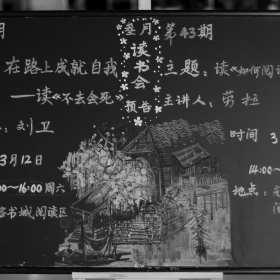 月
在路上成就自我
——读《不去会死》
：刘卫
3月12日
0~16:00 周六
书城阅读区
叁月
读书会
预告
第43期
主题：读《如何阅读
主讲人：劳拉
时间 3
14:0
地点：